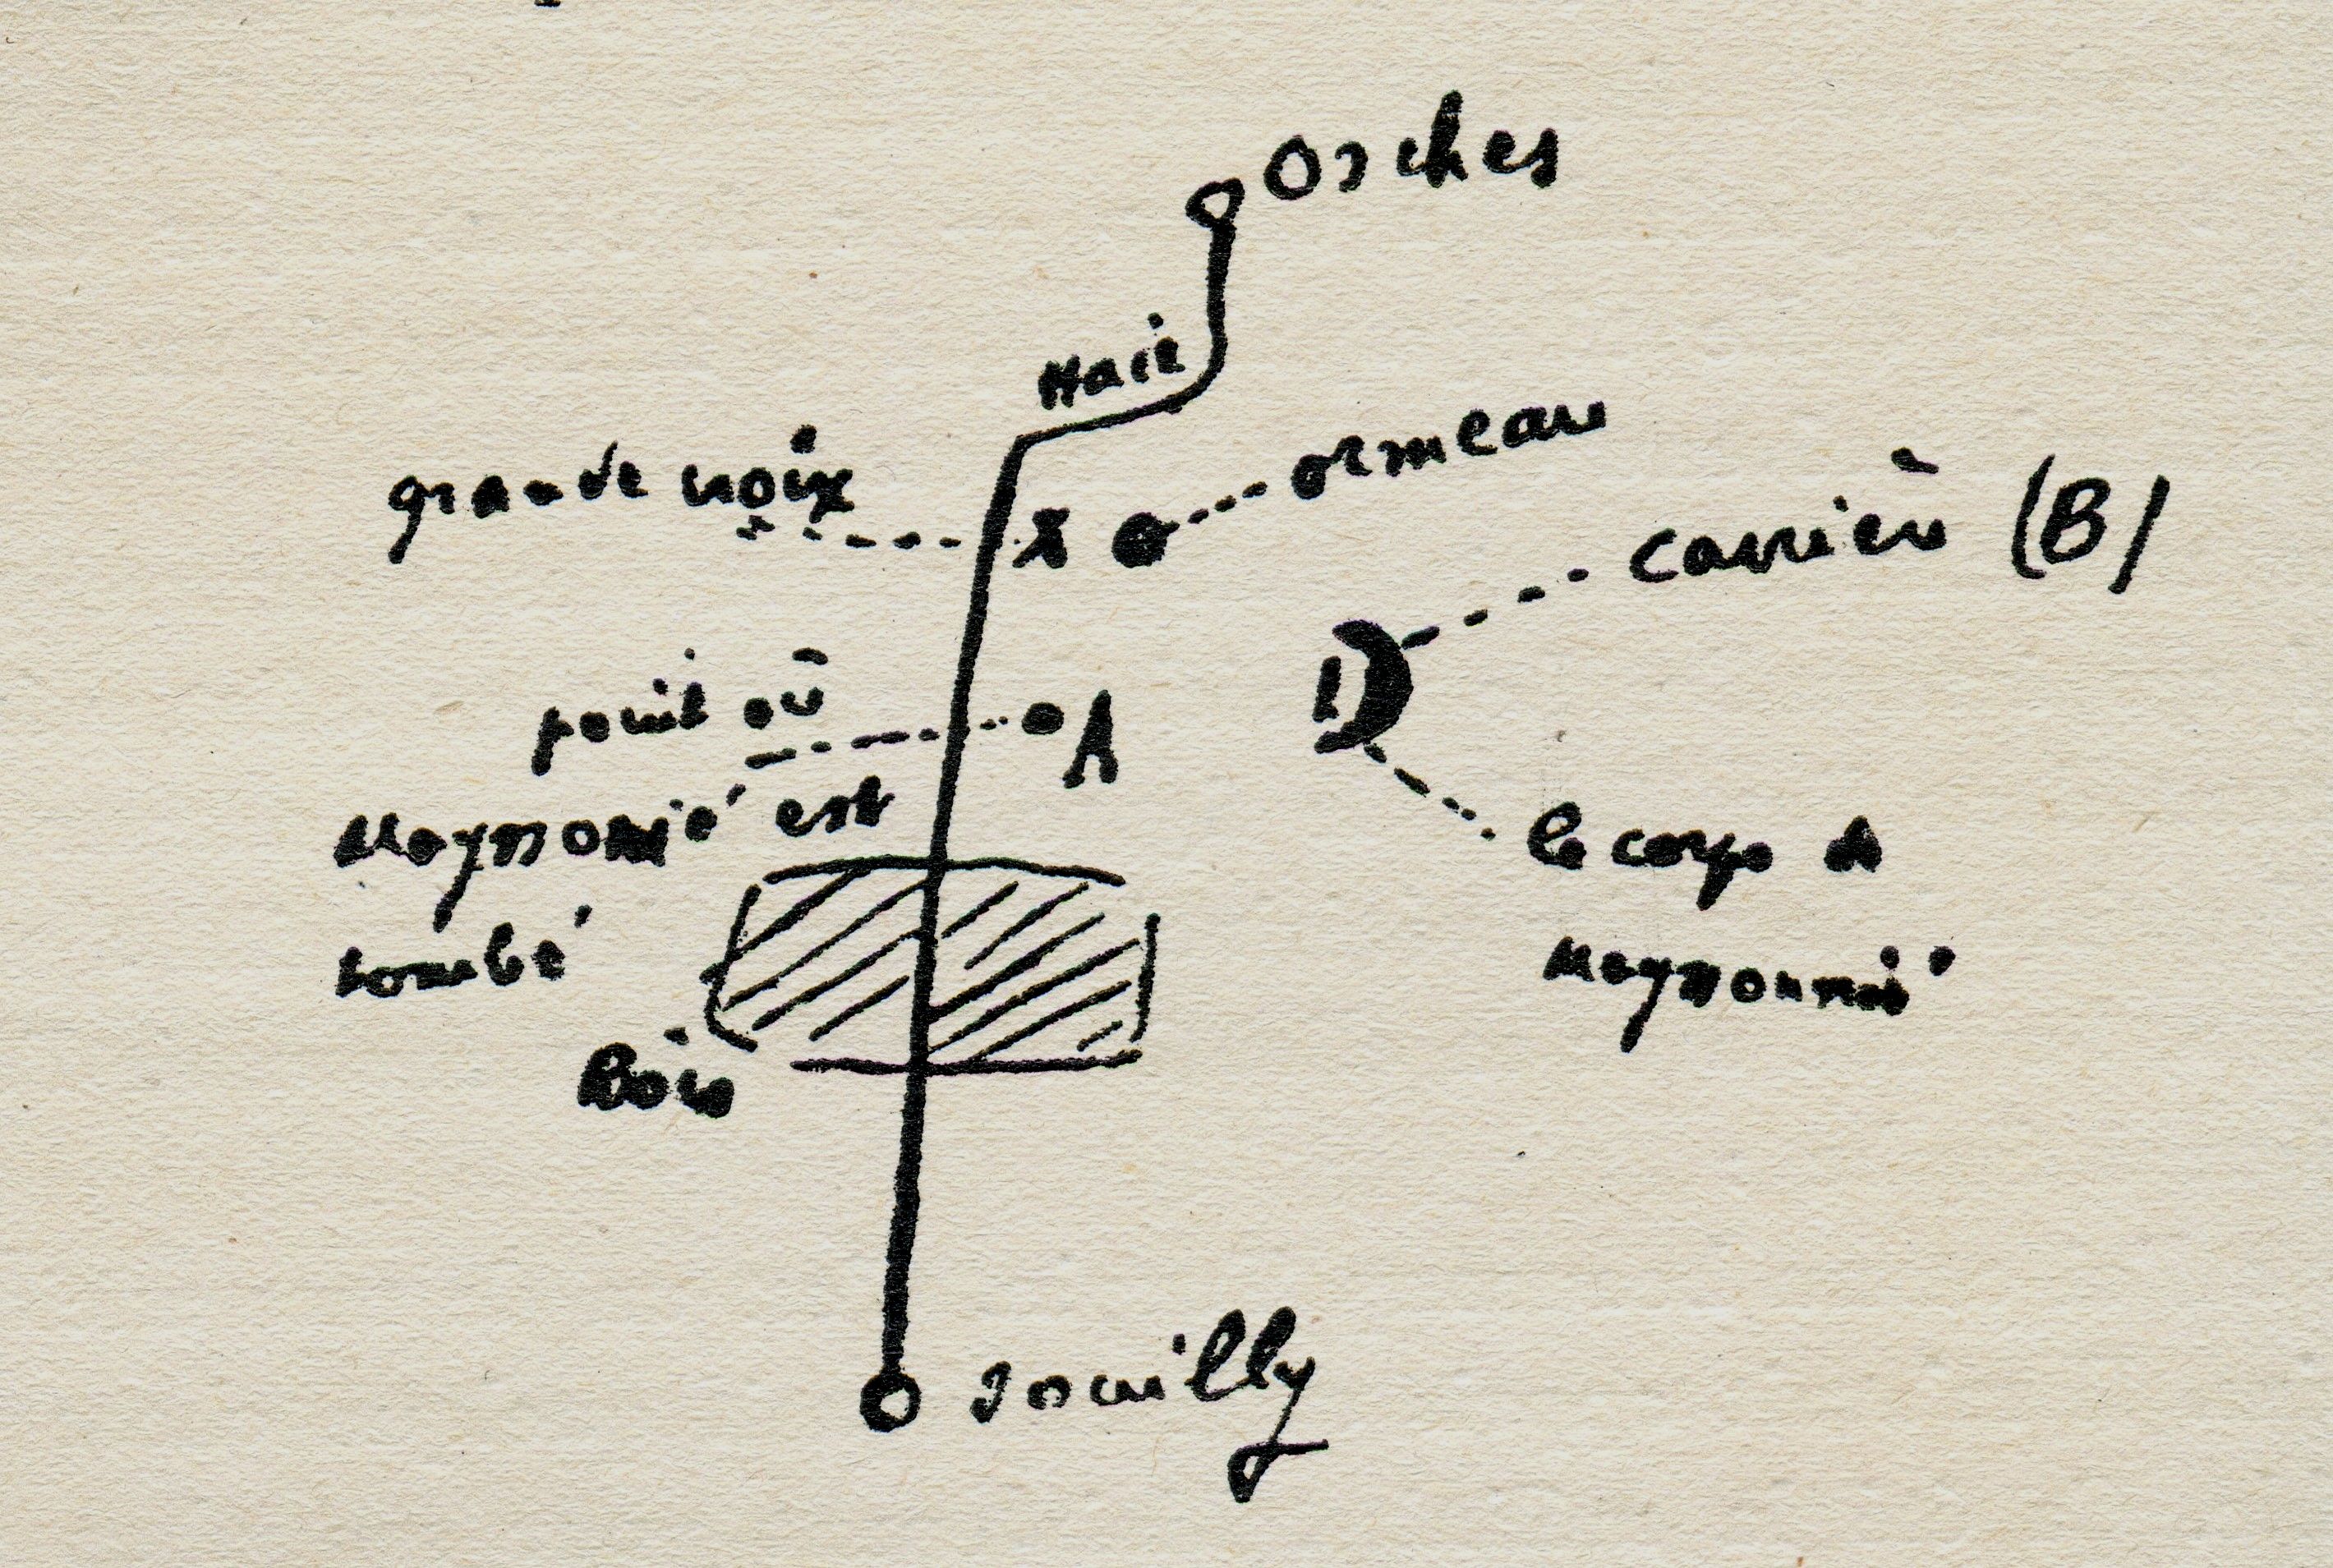 Orches
Haie
ormeau
grande croix
carrière (B)
point où
A
Meyronné est
tombé
le corps de
Meyronné
Bois
Jouilly